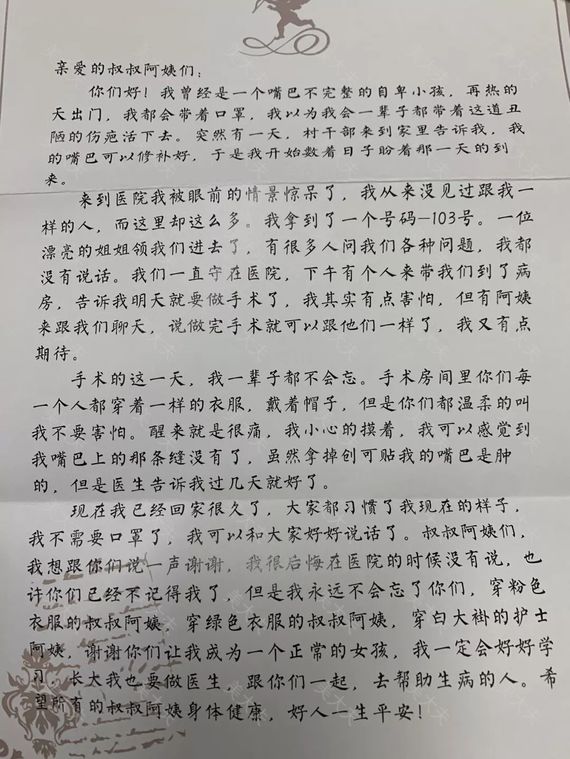 亲爱的叔叔阿姨们：
你们好！我曾经是一个嘴巴不完整的自卑小孩，再热的
天出门，我都会带着口罩，我以为我会一辈子都带着这道丑
陋的伤疤活下去。突然有一天，村干部来到家里告诉我，我
的嘴巴可以修补好，于是我开始数着日子盼着那一天的到
来。
来到医院我被眼前的情景惊呆了，我从来没见过跟我一
样的人，而这里却这么多。我拿到了一个号码—103号。一位
漂亮的姐姐领我们进去了，有很多人问我们各种问题，我都
没有说话。我们一直守在医院，下午有个人来带我们到了病
房，告诉我明天就要做手术了，我其实有点害怕，但有阿姨
来跟我们聊天，说做完手术就可以跟他们一样了，我又有点
期待。
手术的这一天，我一辈子都不会忘。手术房间里你们每
一个人都穿着一样的衣服，戴着帽子，但是你们都温柔的叫
我不要害怕。醒来就是很痛，我小心的摸着，我可以感觉到
我嘴巴上的那条缝没有了，虽然拿掉创可贴我的嘴巴是肿
的，但是医生告诉我过几天就好了。
现在我已经回家很久了，大家都习惯了我现在的样子，
我不需要口罩了，我可以和大家好好说话了。叔叔阿姨们，
我想跟你们说一声谢谢，我很后悔在医院的时候没有说，也
许你们已经不记得我了，但是我永远不会忘了你们，穿粉色
衣服的叔叔阿姨，穿绿色衣服的叔叔阿姨，穿白大褂的护士
阿姨，谢谢你们让我成为一个正常的女孩，我一定会好好学
习，长大我也要做医生，跟你们一起，去帮助生病的人。希
望所有的叔叔阿姨身体健康，好人一生平安！